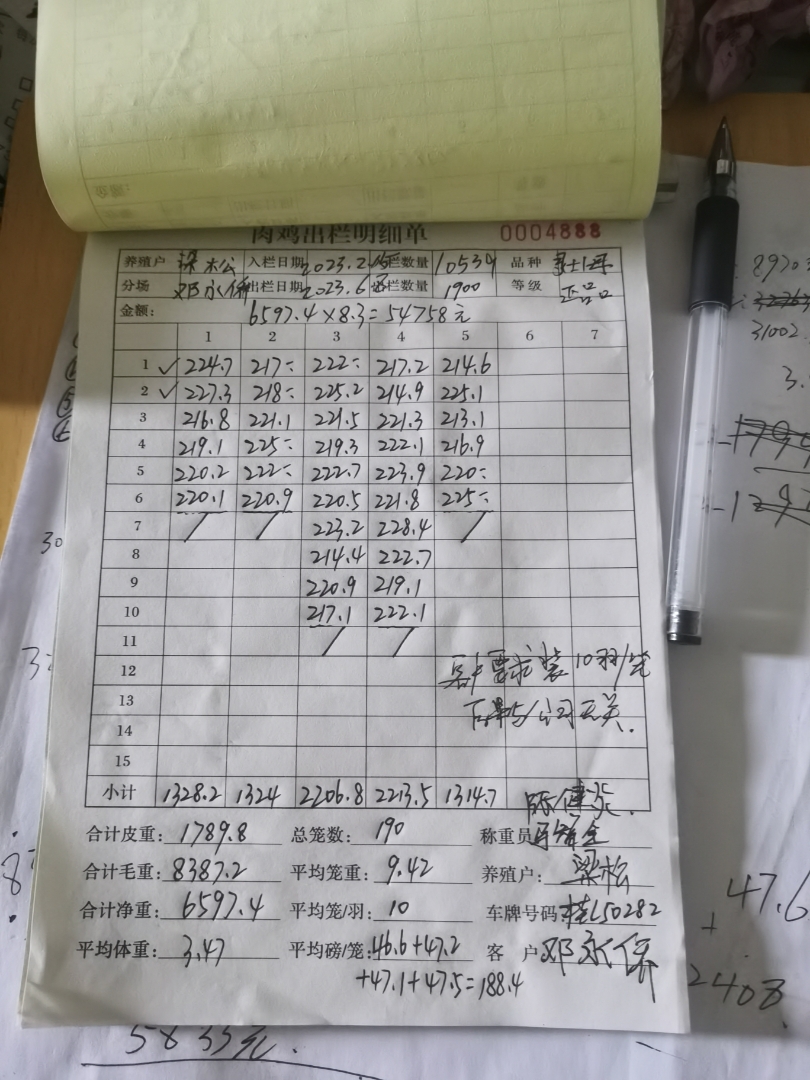 肉鸡出栏明细单 0004888
养殖户 梁松 入栏日期 2023.2 栏数量 10534 品种
分场 邓永保 出栏日期 2023.6 栏数量 1900 等级 正品
金额： 6597.4×8.3=54758元
1 2 3 4 5 6 7
1 ✓ 224.7 217÷ 222÷ 217.2 214.6
2 ✓ 227.3 218÷ 225.2 214.9 225.1
3 216.8 221.1 221.5 221.3 213.1
4 219.1 225÷ 219.3 222.1 216.9
5 220.2 222÷ 222.7 223.9 220÷
6 220.1 220.9 220.5 221.8 225÷
7 / / 223.2 228.4 /
8 214.4 222.7
9 220.9 219.1
10 217.1 222.1
11 / /
12 客户要求装10羽/笼
13 与公司无关.
14
15
小计 1328.2 1324 2206.8 2213.5 1314.7
合计皮重： 1789.8 总笼数： 190 称重员
合计毛重： 8387.2 平均笼重： 9.42 养殖户： 梁松
合计净重： 6597.4 平均笼/羽： 10 车牌号码 桂L50282
平均体重： 3.47 平均磅/笼： 46.6+47.2 客户 邓永保
+47.1+47.5=188.4
8970
31002
3.
47.6
+
2408
5835元.